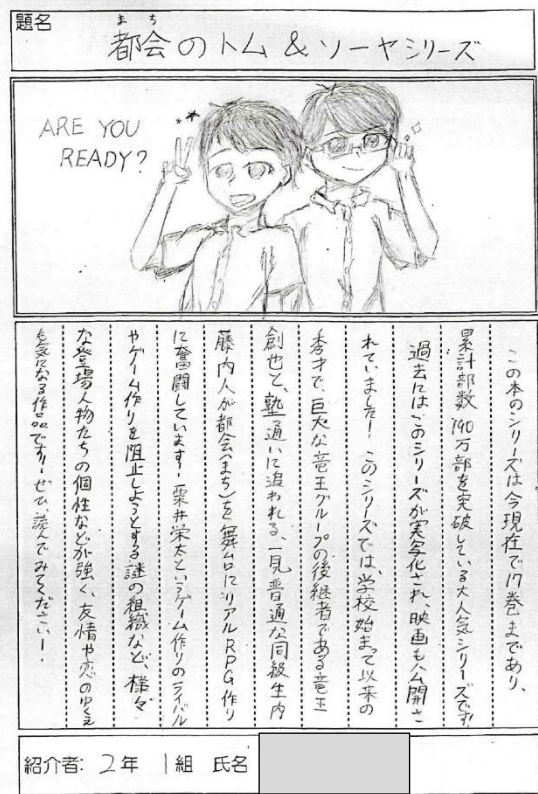 題名
まち
都会のトム&ソーヤシリーズ
ARE YOU
READY?
この本のシリーズは今現在で17巻まであり、
累計部数190万部を突破している大人気シリーズです!
過去にはこのシリーズが実写化され、映画も公開さ
れていました!このシリーズでは、学校始まって以来の
秀才で、巨大な竜王グループの後継者である竜王
創也と、塾通いに追われる、一見普通な同級生内
藤内人が都会(まち)を舞台にリアルRPG作り
に奮闘しています!栗井栄太というゲーム作りのライバル
やゲーム作りを阻止しようとする謎の組織など、様々
な登場人物たちの個性などが強く、友情や恋のゆくえ
も気になる作品です!ぜひ読んでみてください!
紹介者: 2年 1組 氏名